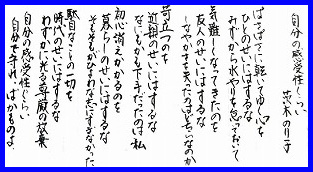 自分の感受性くらい
茨木のり子
ぱさぱさに乾いてゆく心を
ひとのせいにはするな
みずから水やりを怠っておいて
気難しくなってきたのを
友人のせいにはするな
しなやかさを失ったのはどちらなのか
苛立つのを
近親のせいにはするな
なにもかも下手だったのは私
初心消えかかるのを
暮らしのせいにはするな
そもそもがひよわな志にすぎなかった
駄目なことの一切を
時代のせいにはするな
わずかに光る尊厳の放棄
自分の感受性くらい
自分で守れ ばかものよ